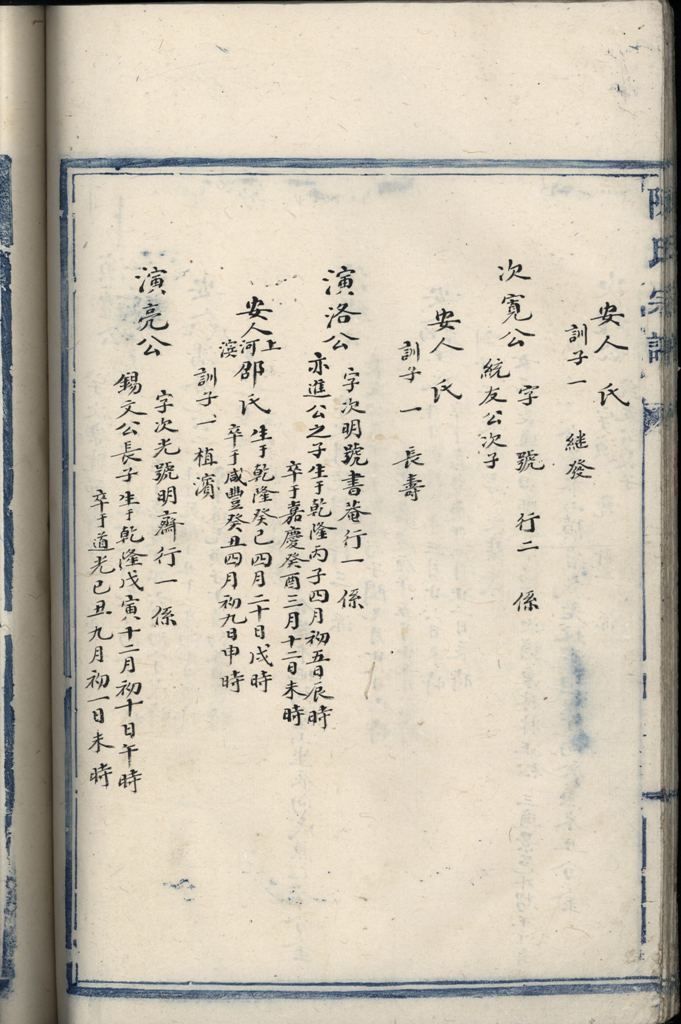 陳氏宗譜
安人 氏
訓子一 継發
次寬公 字 號 行二 係
統友公次子
安人 氏
訓子一 長壽
演洛公 字次明號書菴行一係
亦進公之子生于乾隆丙子四月初五日辰時
卒于嘉慶癸酉三月十二日未時
安人上河濱邵氏 生于乾隆癸巳四月二十日戌時
卒于咸豐癸丑四月初九日申時
訓子一、植濱
演亮公 字次光號明齋行一係
錫文公長子生于乾隆戊寅十二月初十日午時
卒于道光己丑九月初一日未時